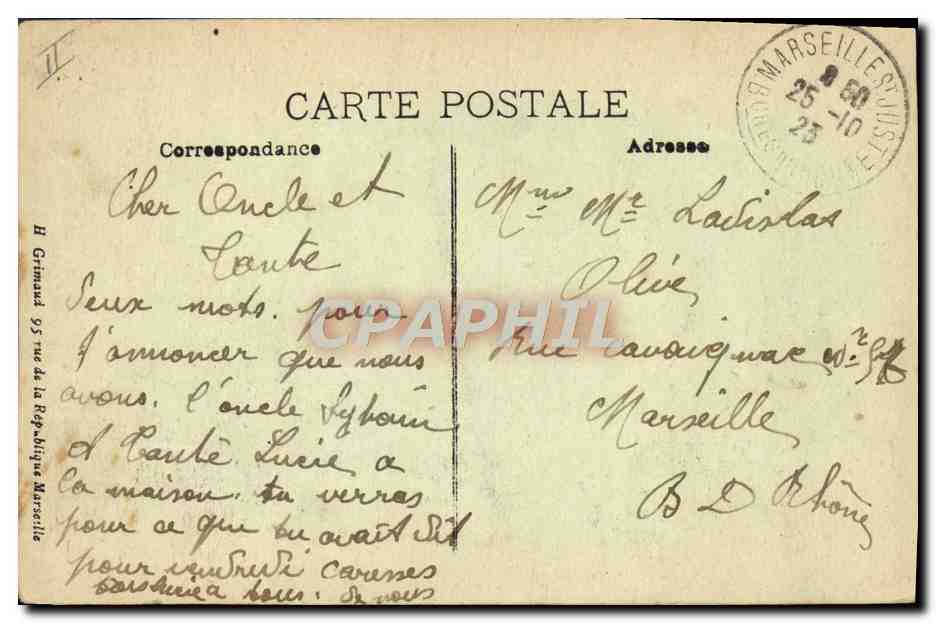 II
CARTE POSTALE
Correspondance
Adresse
MARSEILLE ST JUST
8 50
25 -10
23
BCHES DU RHONE
Cher Oncle et
Tante
deux mots. pour
t'annoncer que nous
avons. l'oncle Sylvain
et Tante Lucie a
la maison. tu verras
pour ce que tu avait dit
pour vendredi caresses
a tous. de nous
Mme Mr Ladislas
Olive
Rue Cavaignac
Marseille
B D Rhône
H Grimaud 95 rue de la République Marseille
CPAPHIL